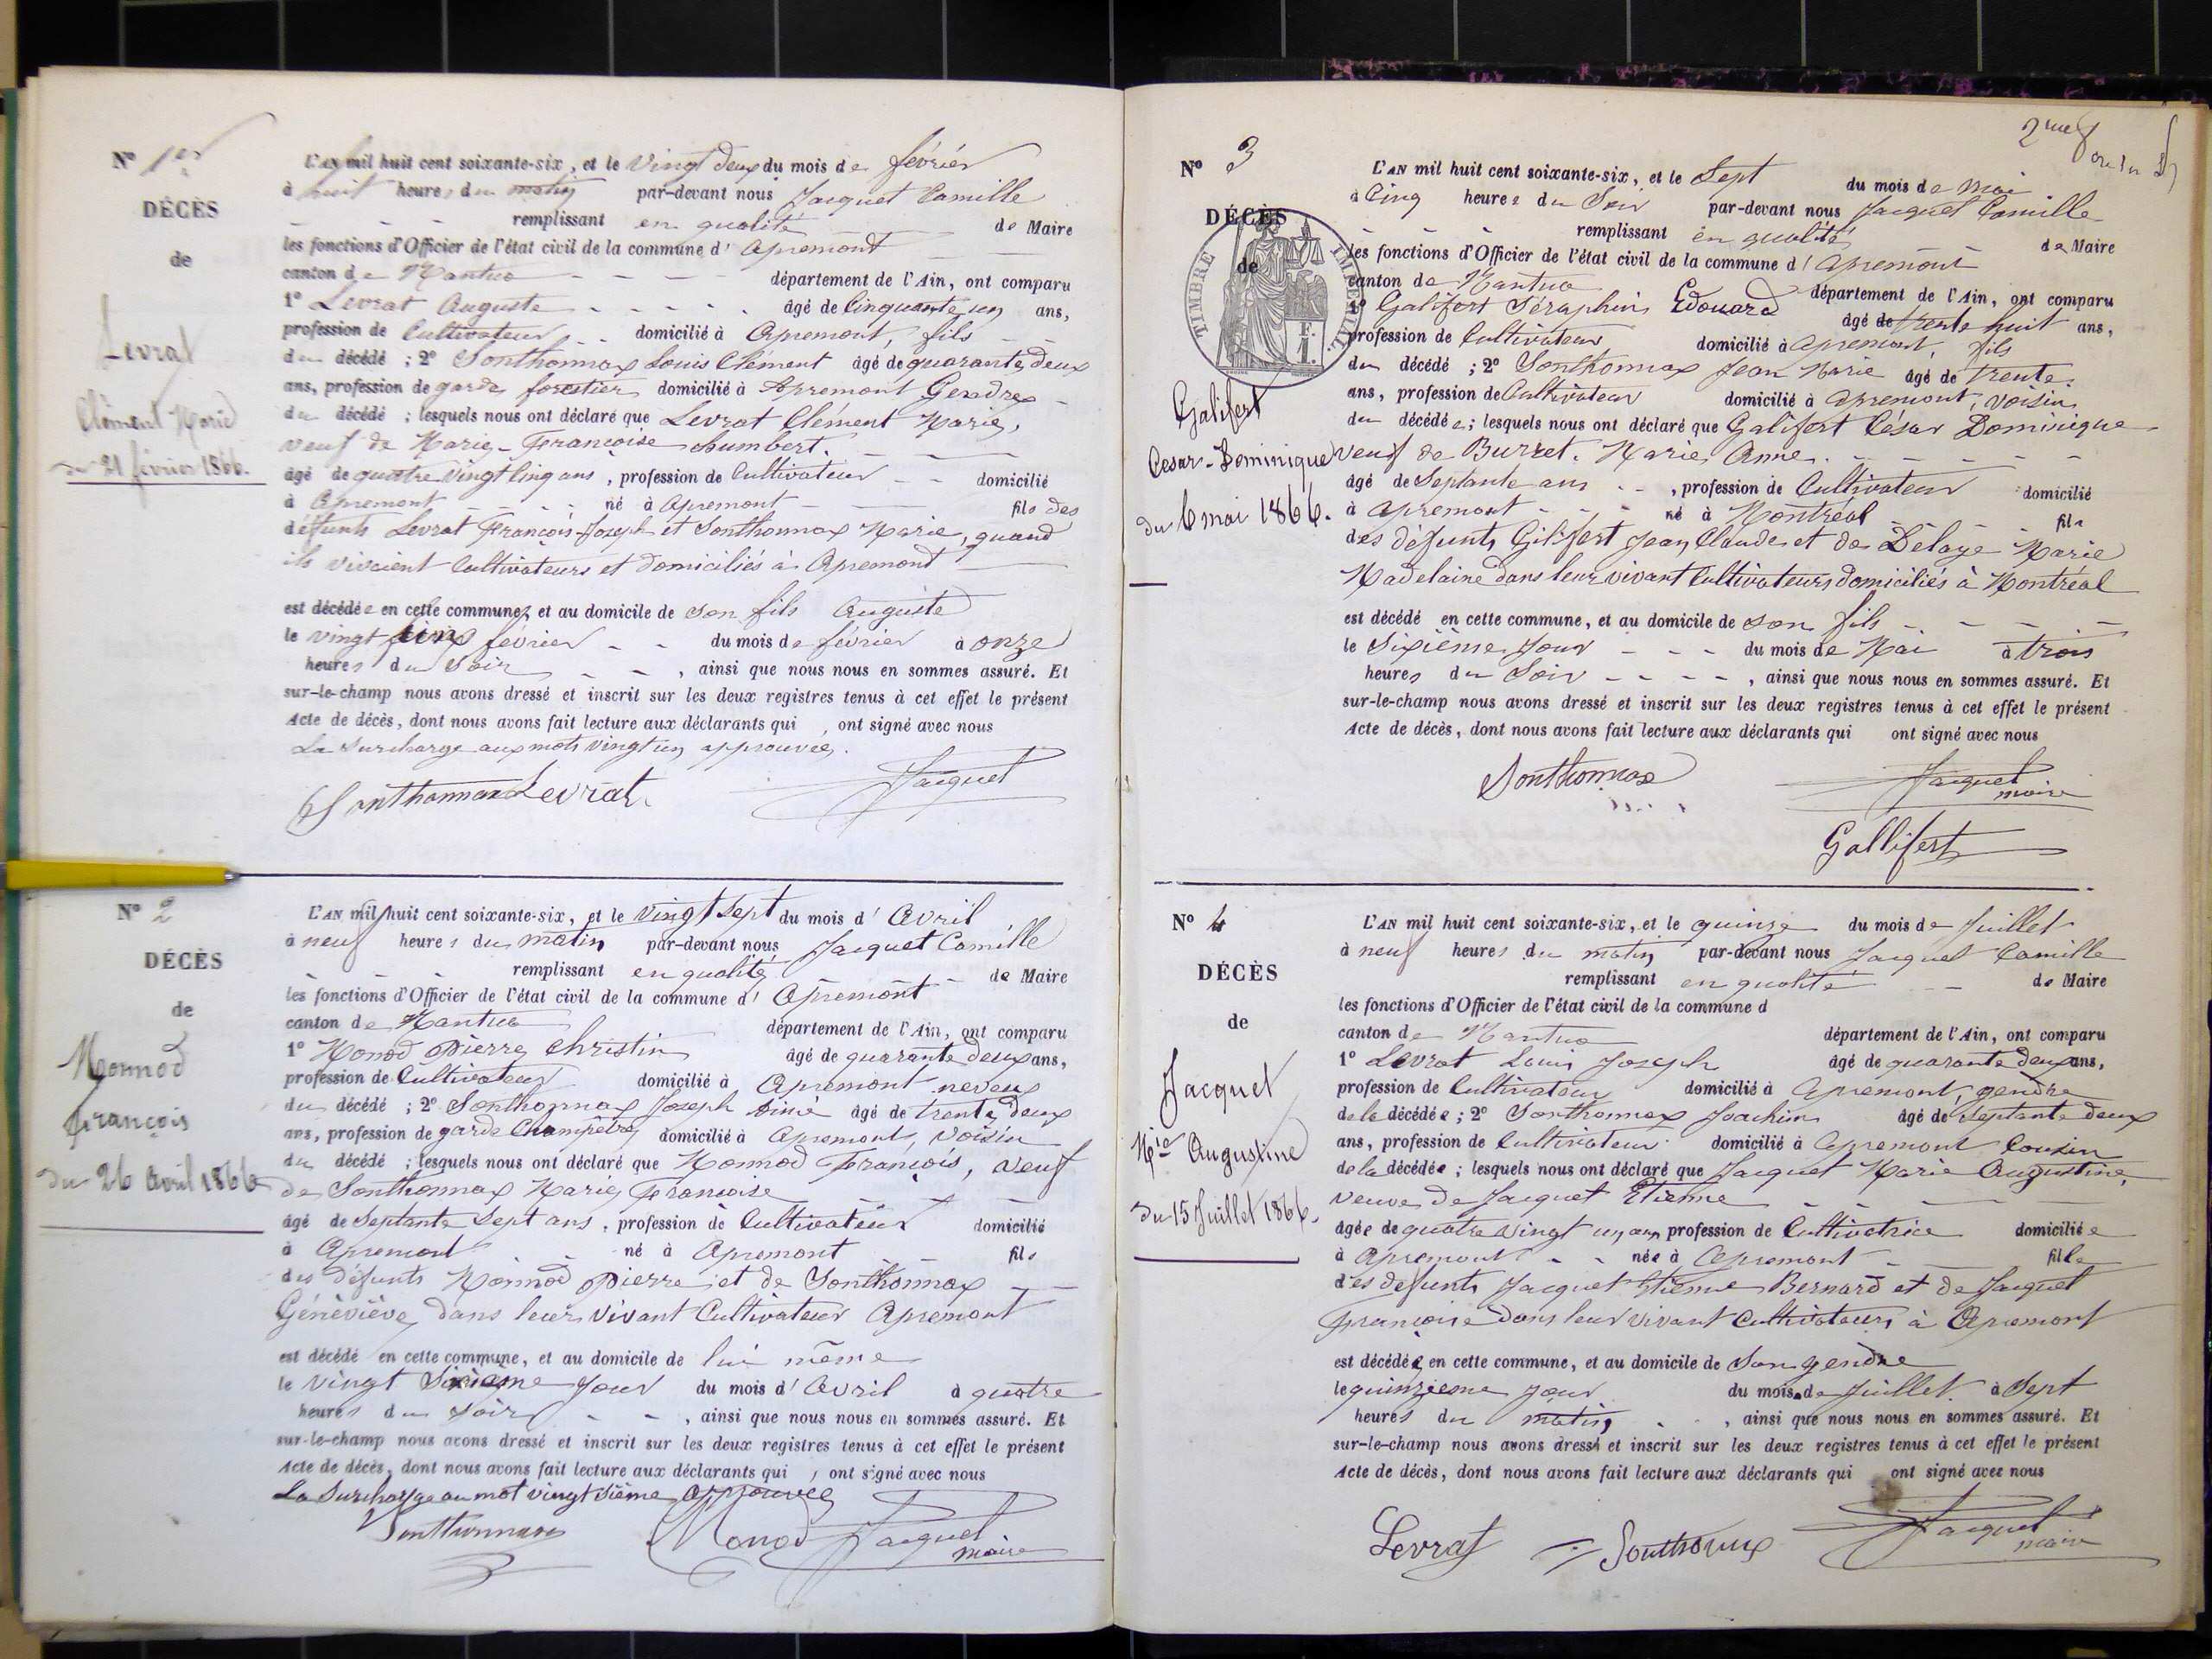 Nº 1er
DÉCÈS
de
Levrat
Clément Marie
du 21 février 1866.
L'AN mil huit cent soixante-six, et le Vingt deux du mois de février
à huit heures du matin par-devant nous Jacquet Camille
remplissant en qualité de Maire
les fonctions d'Officier de l'état civil de la commune d'Apremont
canton de Nantua département de l'Ain, ont comparu
1º Levrat Auguste âgé de Cinquante un ans,
profession de Cultivateur domicilié à Apremont, fils
du décédé ; 2º Sonthonnax Louis Clément âgé de quarante deux
ans, profession de garde forestier domicilié à Apremont Gendre
du décédé ; lesquels nous ont déclaré que Levrat Clément Marie,
veuf de Marie-Françoise humbert.
âgé de quatre Vingt Cinq ans, profession de Cultivateur domicilié
à Apremont né à Apremont fils des
défunts Levrat François-Joseph et Sonthonnax Marie, quand
ils vivaient Cultivateurs et domiciliés à Apremont
est décédée en cette commune, et au domicile de son fils Auguste
le vingt février du mois de février à onze
heures du Soir, ainsi que nous nous en sommes assuré. Et
sur-le-champ nous avons dressé et inscrit sur les deux registres tenus à cet effet le présent
Acte de décès, dont nous avons fait lecture aux déclarants qui, ont signé avec nous
La Surcharge aux mots vingt un approuvée.
Sonthonnax Levrat Jacquet
Nº 2
DÉCÈS
de
Monnod
François
du 26 Avril 1866
L'AN mil huit cent soixante-six, et le Vingt Sept du mois d'Avril
à neuf heures du matin par-devant nous Jacquet Camille
remplissant en qualité de Maire
les fonctions d'Officier de l'état civil de la commune d'Apremont
canton de Nantua département de l'Ain, ont comparu
1º Monod Pierre Christin âgé de quarante deux ans,
profession de Cultivateur domicilié à Apremont neveu
du décédé ; 2º Sonthonnax Joseph Aimé âgé de trente deux
ans, profession de garde Champêtre domicilié à Apremont, Voisin
du décédé ; lesquels nous ont déclaré que Monnod François, veuf
de Sonthonnax Marie Françoise
âgé de Septante Sept ans, profession de Cultivateur domicilié
à Apremont né à Apremont fils
des défunts Monnod Pierre et de Sonthonnax
Généviève dans leur vivant Cultivateur Apremont
est décédé en cette commune, et au domicile de lui même
le Vingt Sixième Jour du mois d'Avril à quatre
heures du soir, ainsi que nous nous en sommes assuré. Et
sur-le-champ nous avons dressé et inscrit sur les deux registres tenus à cet effet le présent
Acte de décès, dont nous avons fait lecture aux déclarants qui, ont signé avec nous
La Surcharge au mot vingt sième approuvée
Sonthonnax Monod Jacquet
maire
2me
Nº 3
DÉCÈS
de
TIMBRE IMPÉRIAL
F.
1.
Galifert
Cesar-Dominique
du 6 mai 1866.
L'AN mil huit cent soixante-six, et le Sept du mois de Mai
à Cinq heures du Soir par-devant nous Jacquet Camille
remplissant en qualité de Maire
les fonctions d'Officier de l'état civil de la commune d'Apremont
canton de Nantua département de l'Ain, ont comparu
1º Galifert Séraphin Edouard âgé de trente huit ans,
profession de Cultivateur domicilié à Apremont, fils
du décédé ; 2º Sonthonnax Jean Marie âgé de trente
ans, profession de Cultivateur domicilié à Apremont, voisin
du décédée ; lesquels nous ont déclaré que Galifert César Dominique
veuf de Burret. Marie Anne.
âgé de Septante ans, profession de Cultivateur domicilié
à Apremont né à Montréal fils
des défunts Galifert Jean Claude et de Delaye Marie
Madelaine dans leur vivant Cultivateurs domiciliés à Montréal
est décédé en cette commune, et au domicile de son fils
le Sixième Jour du mois de Mai à trois
heures du Soir, ainsi que nous nous en sommes assuré. Et
sur-le-champ nous avons dressé et inscrit sur les deux registres tenus à cet effet le présent
Acte de décès, dont nous avons fait lecture aux déclarants qui ont signé avec nous
Sonthonnax Jacquet
maire
Gallifert
Nº 4
DÉCÈS
de
Jacquet
Mie Augustine
du 15 Juillet 1866.
L'AN mil huit cent soixante-six, et le quinze du mois de Juillet
à neuf heures du matin par-devant nous Jacquet Camille
remplissant en qualité de Maire
les fonctions d'Officier de l'état civil de la commune d
canton de Nantua département de l'Ain, ont comparu
1º Levrat Louis Joseph âgé de quarante deux ans,
profession de Cultivateur domicilié à Apremont, gendre
de la décédée ; 2º Sonthonnax Joachim âgé de Septante deux
ans, profession de Cultivateur domicilié à Apremont Cousin
de la décédée ; lesquels nous ont déclaré que Jacquet Marie Augustine,
veuve de Jacquet Etienne
âgée de quatre vingt un ans profession de Cultivatrice domiciliée
à Apremont née à Apremont fille
des défunts Jacquet Etienne Bernard et de Jacquet
françoise dans leur vivant Cultivateurs à Apremont
est décédée en cette commune, et au domicile de Son gendre
le quinzième jour du mois de Juillet à Sept
heures du matin, ainsi que nous nous en sommes assuré. Et
sur-le-champ nous avons dressé et inscrit sur les deux registres tenus à cet effet le présent
Acte de décès, dont nous avons fait lecture aux déclarants qui ont signé avec nous
Levrat Sonthonax Jacquet
maire